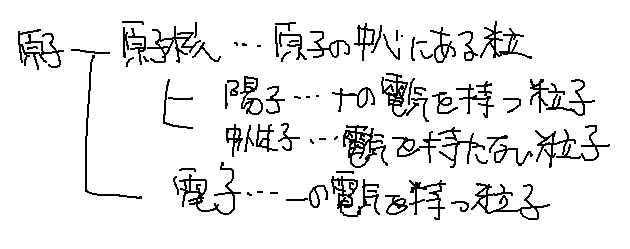 原子 原子核…原子の中心にある粒
陽子…+の電気を持つ粒子
中性子…電気を持たない粒子
電子…-の電気を持つ粒子